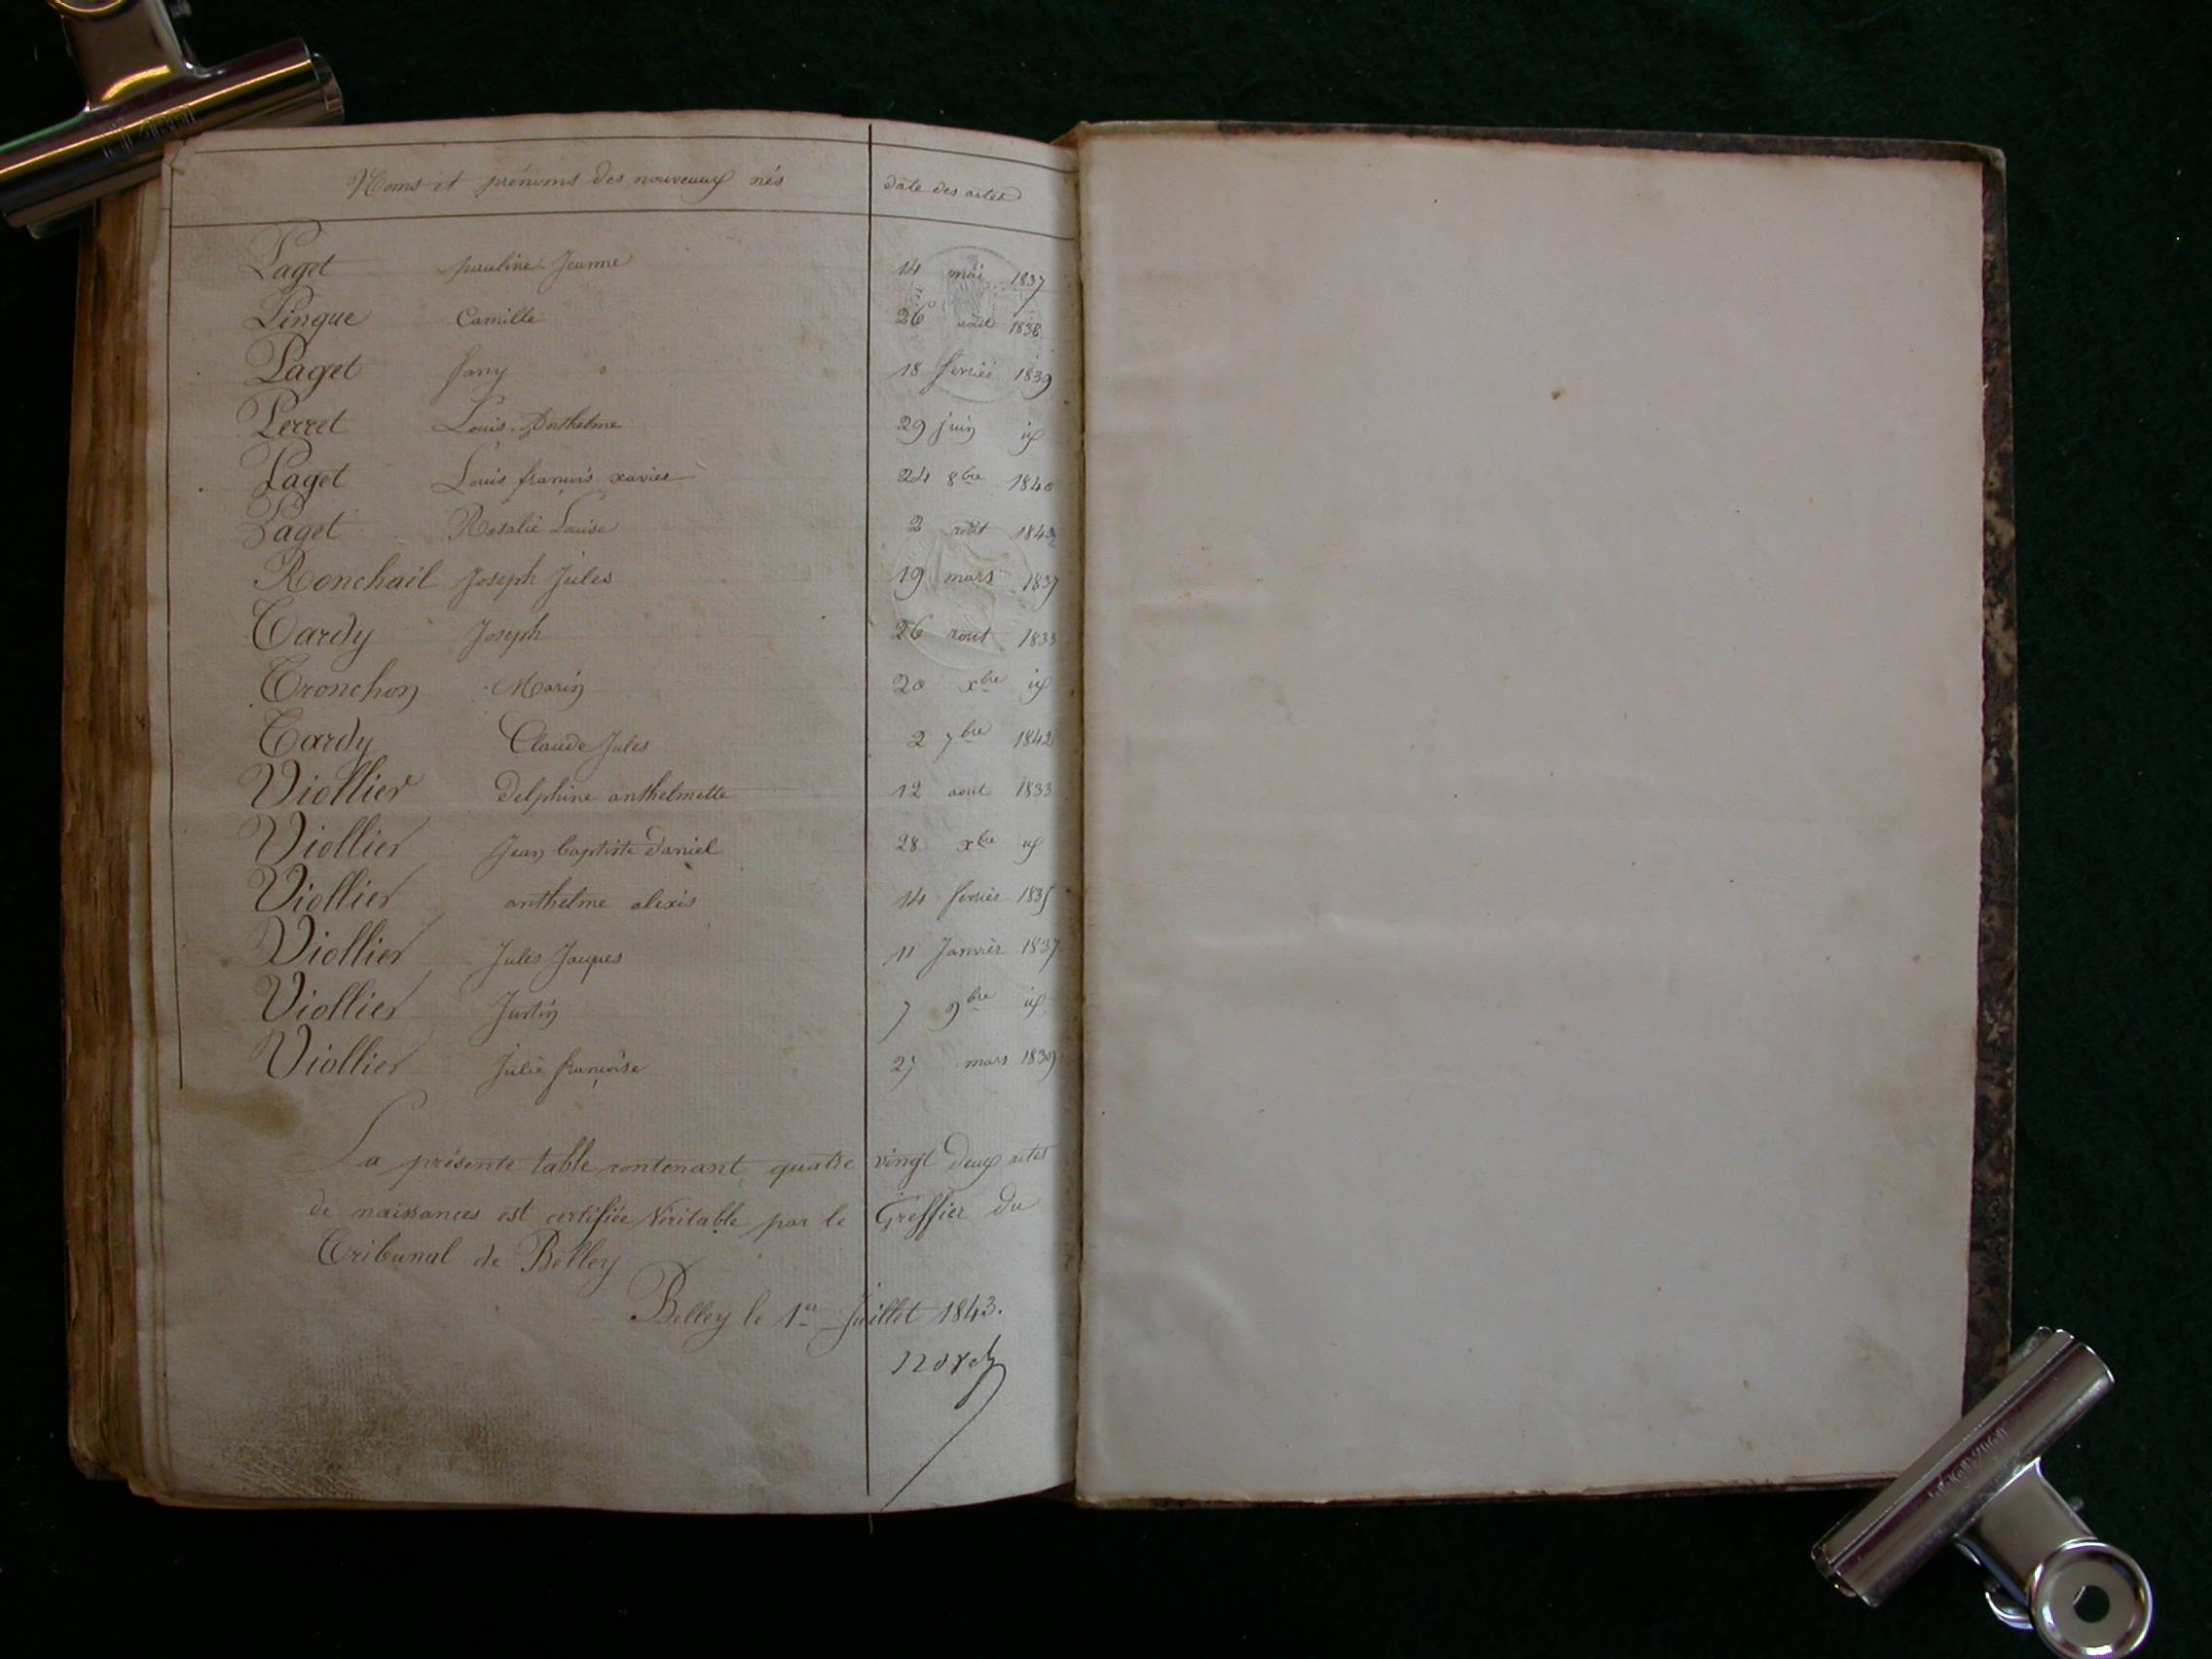 Noms et prénoms des nouveaux nés date des actes
Paget pauline Jeanne 14 mai 1837
Pingue Camille 26 aout 1838
Paget fany 18 fevrier 1839
Perret Louis Anthelme 29 juin id
Paget Louis françois xavier 24 8bre 1840
Paget Rosalie Louise 2 août 1842
Ronchail Joseph Jules 19 mars 1837
Tardy Joseph 26 aout 1833
Tronchon Marin 20 xbre id
Tardy Claude Jules 2 7bre 1842
Viollier delphine anthelmette 12 aout 1833
Viollier Jean baptiste daniel 28 xbre id
Viollier anthelme alexis 14 fevrier 1835
Viollier Jules Jacques 11 Janvier 1837
Viollier Justin 7 9bre id
Viollier Julie françoise 27 mars 1839
La présente table contenant quatre vingt deux actes
de naissances est certifiée Véritable par le Greffier du
Tribunal de Belley
Belley le 1er Juillet 1843.